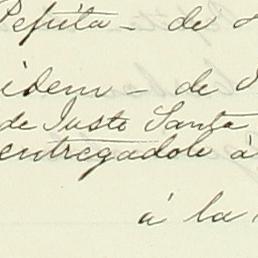 Pepita - de
idem - de
de Justo Santa
entregadole á
á la